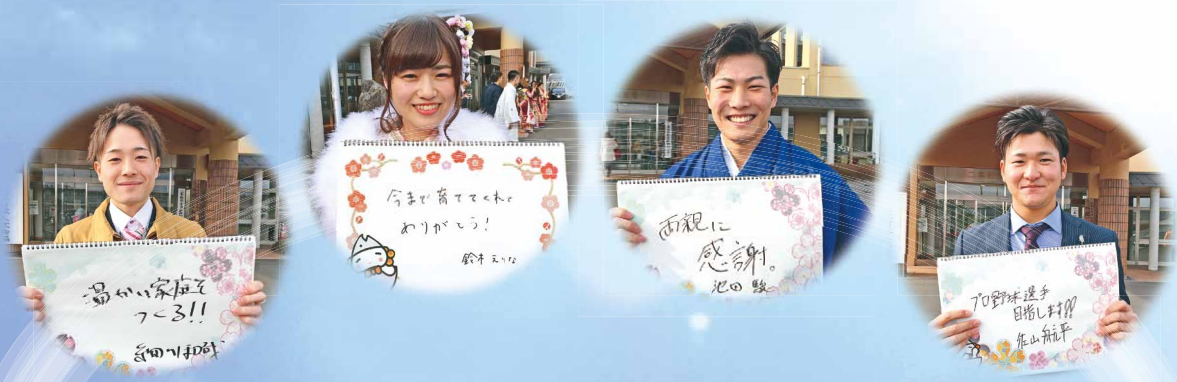 温かい家庭を
つくる!!
今まで育ててくれて
ありがとう!
鈴木 えりな
両親に
感謝。
池田 駿
プロ野球選手
目指します!!
佐山航平